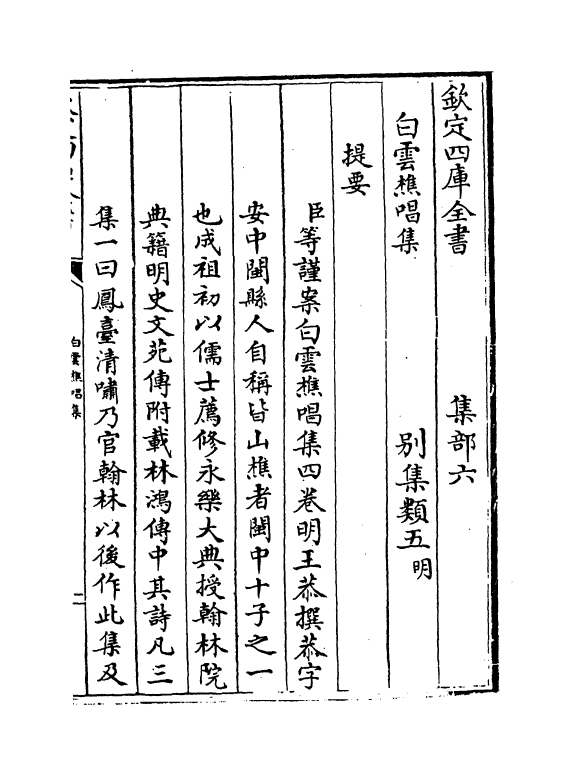 欽定四庫全書　集部六
白雲樵唱集　別集類五明
提要
臣等謹案白雲樵唱集四卷明王恭撰恭字
安中閩縣人自稱皆山樵者閩中十子之一
也成祖初以儒士薦修永樂大典授翰林院
典籍明史文苑傳附載林鴻傳中其詩凡三
集一曰鳳臺清嘯乃官翰林以後作此集及
白雲樵唱集
二